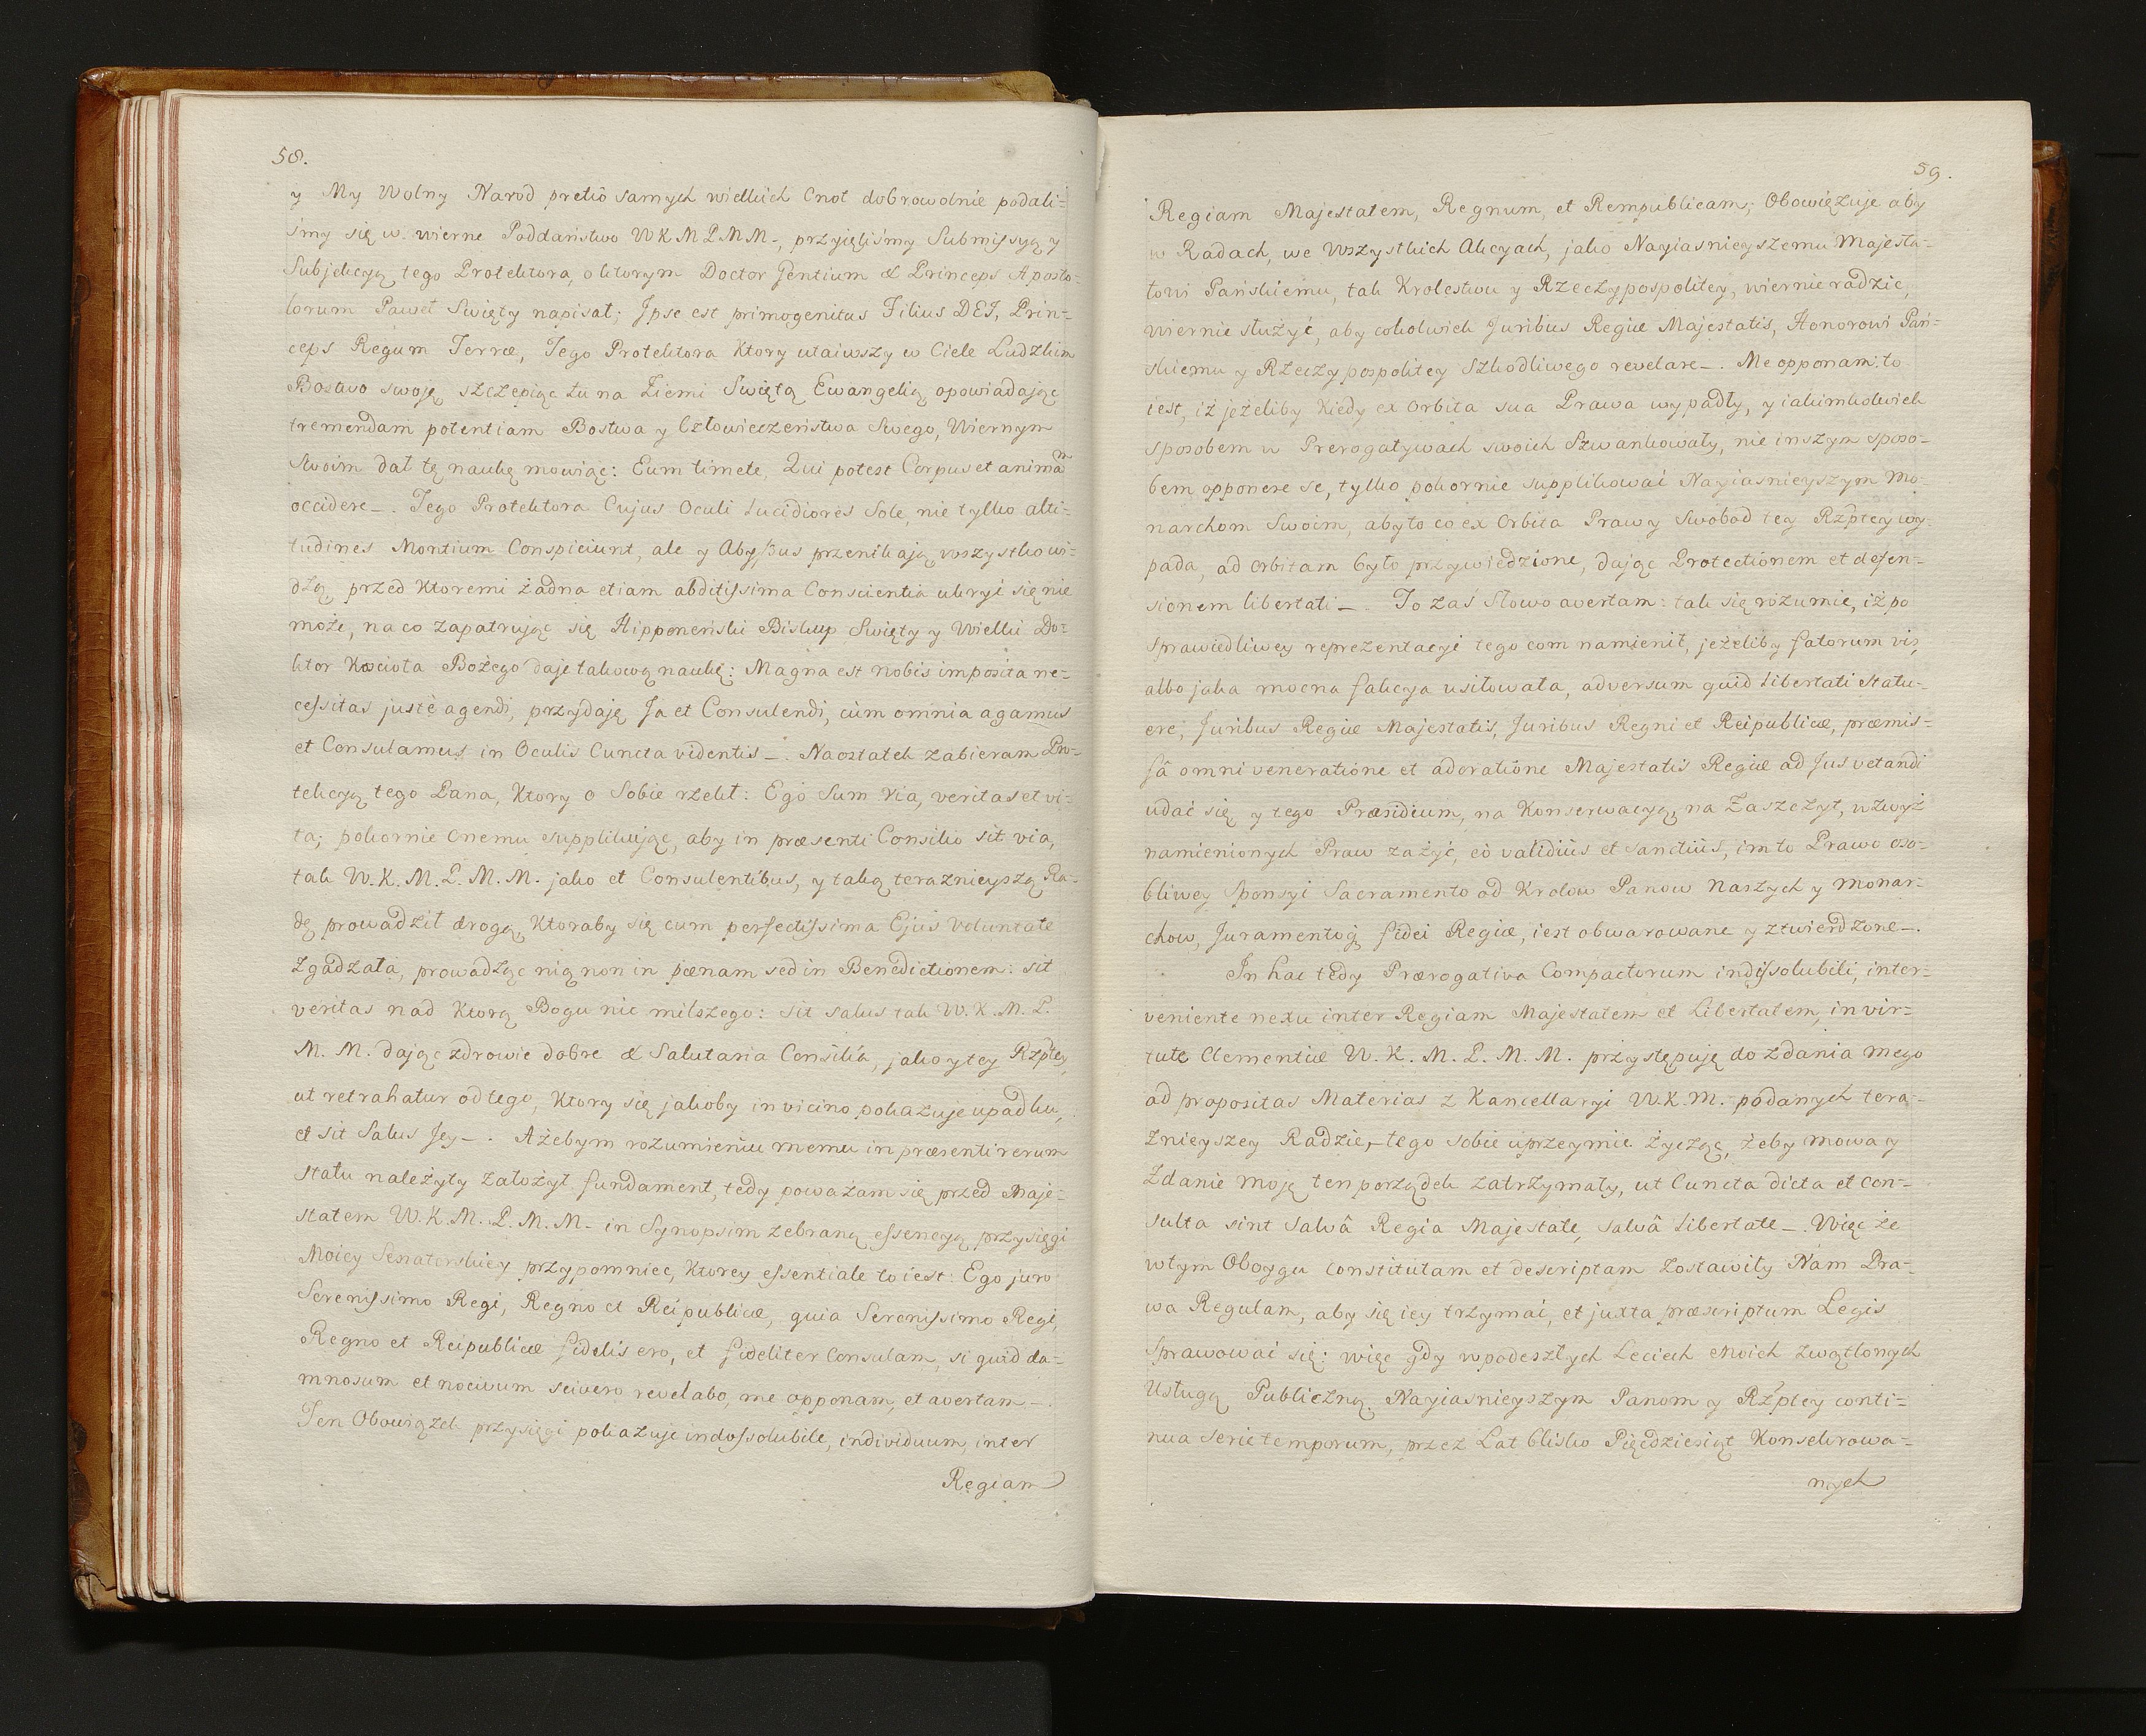 58.
y My Wolny Narod pretio samych wielkich Cnot dobrowolnie podali=
śmy się w wierne Poddaństwo WKMPMM-, przyięliśmy Submissyą y
Subjekcyą tego Protektora, o ktorym Doctor Gentium & Princeps Aposto-
lorum Paweł Swięty napisał; Ipse est primogenitus Filius DEI, Prin=
ceps Regum Terræ, Tego Protektora Ktory utaiwszy w Ciele Ludzkim
Bostwo swoje, szczepiąc tu na Ziemi Swiętą Ewangelią, opowiadając
tremendam potentiam Bostwa y Człowieczeństwa Swego, Wiernym
Swoim dał tę naukę mowiąc: Eum timete, Qui potest Corpus et animam
occidere-. Tego Protektora Cujus Oculi Lucidiores Sole, nie tylko alti=
tudines Montium Conspiciunt, ale y Abyssus przenikają, wszystko wi=
dzą, przed Ktoremi żadna etiam abditissima Conscientia ukryć się nie
może, na co zapatrując się Hipponeński Biskup Swięty y Wielki Do=
ktor Kościoła Bożego daje takową naukę: Magna est nobis imposita ne=
cessitas justè agendi, przydaję Ja et Consulendi, cùm omnia agamus
et Consulamus in Oculis Cuncta videntis-. Naostatek zabieram Pro-
tekcyą tego Pana, Ktory o Sobie rzekł: Ego Sum Via, veritas et vi-
ta; pokornie onemu supplikując, aby in præsenti Consilio sit via,
tak W.K.M.P.M.M. jako et Consulentibus, y taką teraznieyszą Ra-
dę prowadził drogą, Ktoraby się cum perfectissima Ejus Voluntate
zgadzała, prowadząc nią non in pœnam sed in Benedictionem: sit
veritas nad Ktorą Bogu nic milszego: sit salus tak W.K.M.P.
M.M. dając zdrowie dobre & Salutaria Consilia, jako y tey Rzptey,
ut retrahatur od tego, Ktory się jakoby in vicino pokazuje upadku,
et sit Salus Jey-. Ażebym rozumieniu memu in præsenti rerum
statu należyty założył fundament, tedy poważam się przed Maje=
statem W.K.M.P.M.M- in Synopsim zebraną essencyą przysięgi
Moiey Senatorskiey przypomniec, Ktorey essentiale to iest: Ego juro
Serenissimo Regi, Regno et Reipublicæ, quia Serenissimo Regi,
Regno et Reipublicæ fidelis ero, et fideliter Consulam, si quid da=
mnosum et nocivum scivero revelabo, me opponam, et avertam-.
Ten Obowiązek przysięgi pokazuje indossolubile, individuum, inter
Regiam
59.
Regiam Majestatem, Regnum, et Rempublicam; Obowięzuje aby
w Radach, we Wszystkich Akcyach, jako Nayiasnieyszemu Majesta-
towi Pańskiemu, tak Krolestwu y Rzeczypospolitey, wiernie radzic,
wiernie służyć, aby cokolwiek Juribus Regiæ Majestatis, Honorowi Pań-
skiemu y Rzeczypospolitey Szkodliwego revelare-. Me opponam: to
iest, iż jeżeliby Kiedy ex Orbita sua Prawa wypadły, y iakimkolwiek
sposobem w Prerogatywach swoich Szwankowały, nie inszym sposo-
bem opponere se, tylko pokornie supplikować Nayiasnieyszym Mo-
narchom Swoim, aby to co ex Orbita Praw y Swobod tey Rzptey wy-
pada, ad orbitam było przywiedzione, dając Protectionem et defen-
sionem libertati-. To zaś Słowo avertam: tak się rozumie, iż po
sprawiedliwey reprezentacyi tego com namienił, jeżeliby fatorum vis,
albo jaka mocna fakcya usiłowała, adversum quid Libertati statu-
ere, Juribus Regiæ Majestatis, Juribus Regni et Reipublicæ, præmis-
sâ omni veneratione et adoratione Majestatis Regiæ ad Jus vetandi
udać się, y tego Præsidium, na Konserwacyą, na Zaszczyt, wzwyż
namienionych Praw zażyć, eò validiùs et sanctiùs, im to Prawo oso-
bliwey Sponsyi Sacramento od Krolow Panow Naszych y Monar-
chow, Juramentoq; fidei Regiæ, iest obwarowane y ztwierdzone-.
In hac tedy Prærogativa Compactorum indissolubili, inter-
veniente nexu inter Regiam Majestatem et Libertatem, in vir-
tute Clementiæ W.K.M.P.M.M. przystępuję do zdania mego
ad propositas Materias z Kancellaryi W.K.M. podanych tera-
znieyszey Radzie, tego sobie uprzeymie życząc, żeby mowa y
Zdanie moje ten porządek zatrzymały, ut Cuncta dicta et con-
sulta sint salvâ Regia Majestate, salvâ Libertate-. Więc że
w tym Oboygu constitutam et descriptam zostawiły Nam Pra-
wa Regulam, aby się iey trzymać, et juxta præscriptum Legis
Sprawować się: więc gdy w podeszłych Leciech Moich zwątlonych
Usługą Publiczną Nayiasnieyszym Panom y Rzptey conti-
nua serie temporum, przez Lat blisko Pięćdziesiąt Konsekrowa-
nych